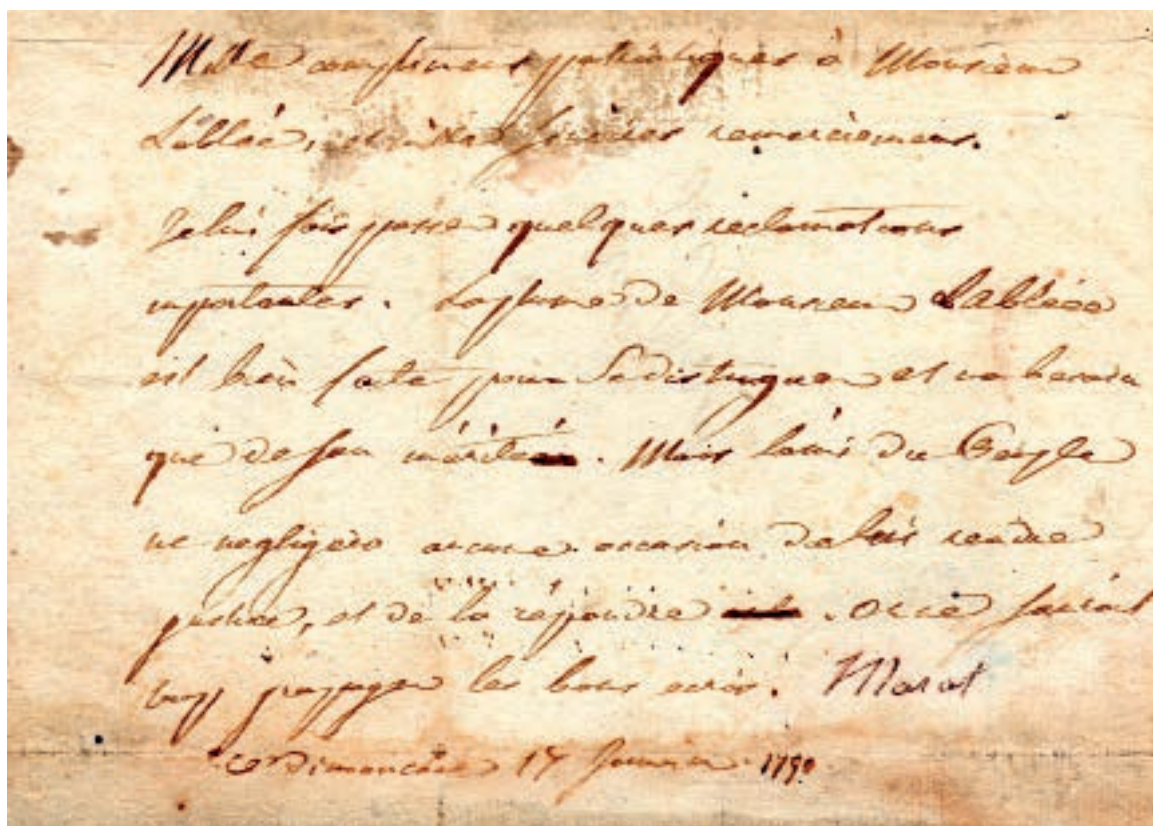 Mille complimens patriotiques à Monsieur
Labléé, et milles sincères remerciemens.
Je lui fais passer quelques reclamations
importantes. La plume de Monsieur Lablééé
est bien faite pour se distinguer et n'a besoin
que de son mérite. Mais l'ami du Peuple
ne negligera aucune occasion de lui rendre
justice, et de la répandre. On ne sauroit
trop propager les bons écrits. Marat
ce Dimanche 17 Janvier 1790